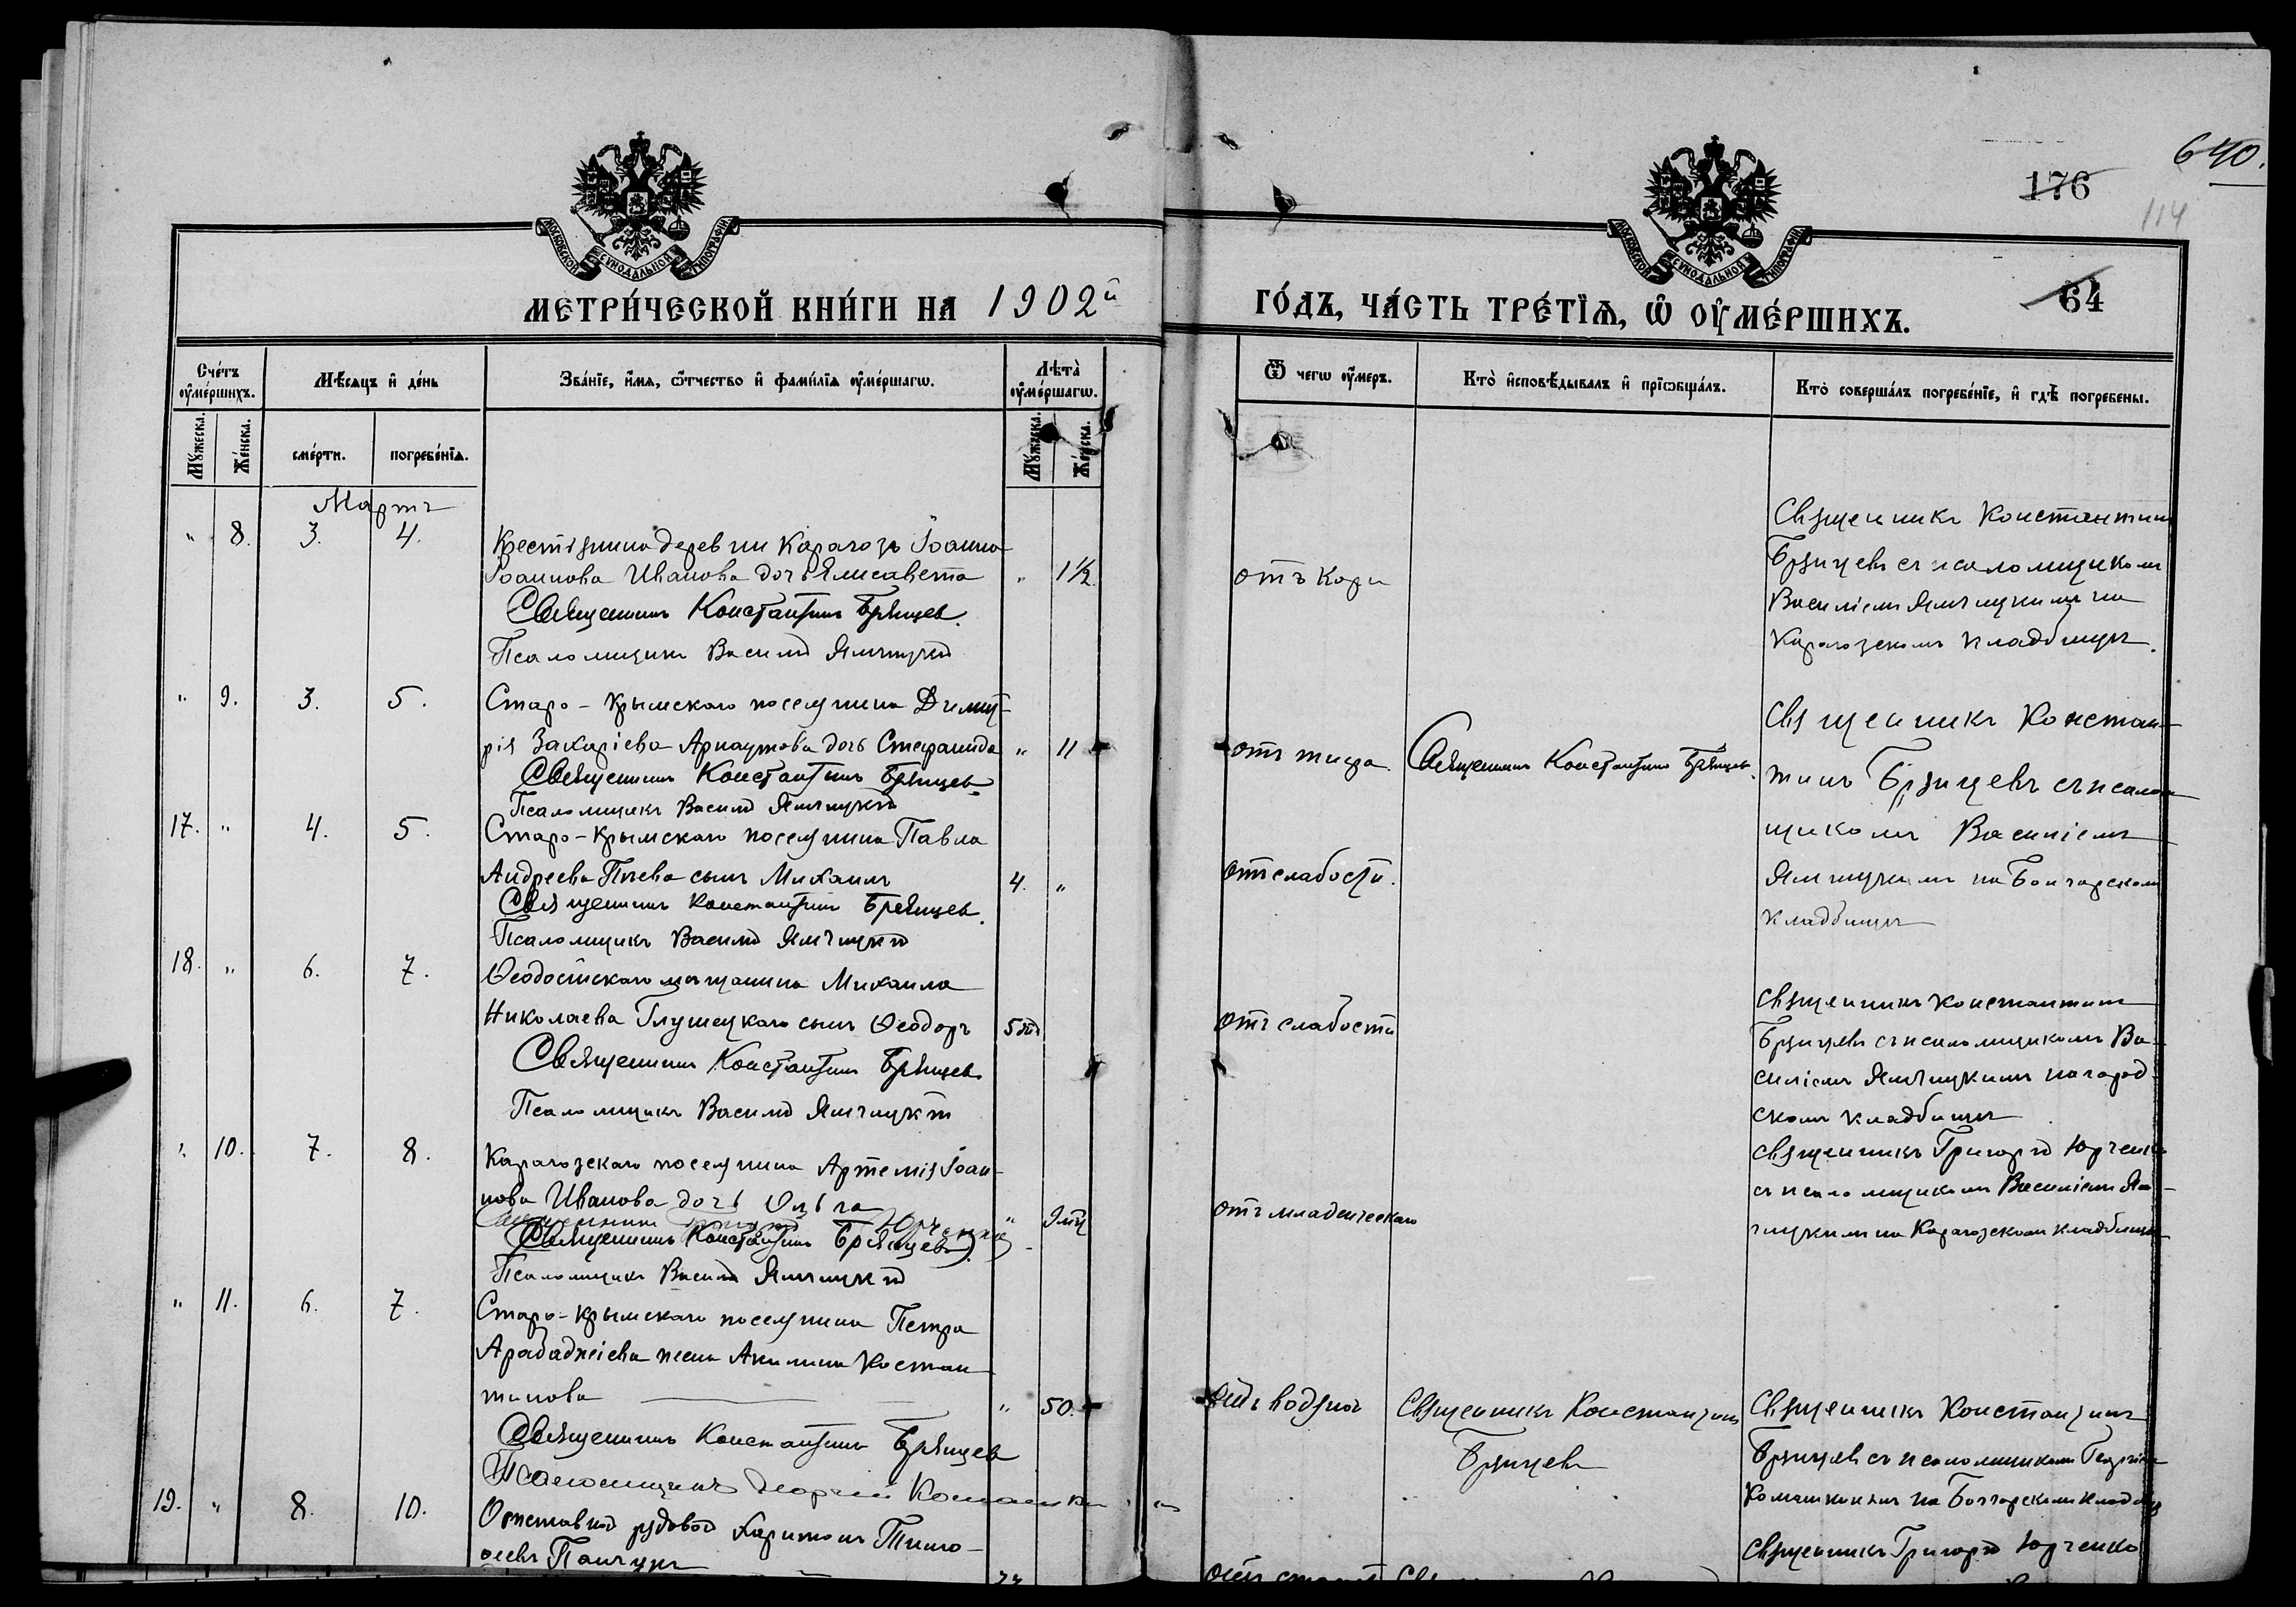 640.
176
114
МОСКОВСКОЙ СУНОДАЛЬНОЙ ТИПОГРАФІИ
МОСКОВСКОЙ СУНОДАЛЬНОЙ ТИПОГРАФІИ
МЕТРИ́ЧЕСКОЙ КНИ́ГИ НА 1902й
ГО́ДЪ, ЧА́СТЬ ТРЕ́ТЇѦ, Ѡ҆ ОУ҆МЕ́РШИХЪ.
64
Сче́тъ оу҆ме́ршихъ.
Мѣ́сѧцъ и҆ де́нь
Зва́нїе, и҆́мѧ, ѻ҆́тчество и҆ фами́лїѧ оу҆ме́ршагѡ.
Лѣ́та оу҆ме́ршагѡ.
Ѿ чегѡ̀ оу҆́меръ.
Кто̀ и҆сповѣ́дывалъ и҆ прїѡбща́лъ.
Кто̀ соверша́лъ погребе́нїе, и҆ гдѣ̀ погребены̀.
Мꙋ́жеска. Же́нска. сме́рти. погребе́нїѧ. Мꙋ́жеска. Же́нска.
Мартъ
" 8. 3. 4. Крестьянина деревни Карагозъ Іоанна
Іоаннова Иванова дочь Елисавета " 1½
Священникъ Константинъ Брянцев.
Псаломщикъ Василій Ямчицкій
отъ Кори
Священникъ Константинъ
Брянцевъ съ псаломщикомъ
Василіемъ Ямчицкимъ на
Карагозскомъ кладбищѣ.
" 9. 3. 5. Старо-Крымскаго поселянина Димит-
рія Захаріева Арнаутова дочь Стефанида " 11
Священникъ Константинъ Брянцев
Псаломщикъ Василій Ямчицкій
отъ тифа. Священникъ Константинъ Брянцев.
Священникъ Констан-
тинъ Брянцевъ съ псалом-
щикомъ Василіемъ
Ямчицкимъ на Болгарскомъ
кладбищѣ
17. " 4. 5. Старо-Крымскаго поселянина Павла
Андреева сынъ Михаилъ 4. "
Священникъ Константинъ Брянцев.
Псаломщикъ Василій Ямчицкій
отъ слабости.
18. " 6. 7. Ѳеодосійскаго мѣщанина Михаила
Николаева Глушецкаго сынъ Ѳеодоръ
Священникъ Константинъ Брянцев.
Псаломщикъ Василій Ямчицкій
отъ слабости
Священникъ Константинъ
Брянцевъ съ псаломщикомъ Ва-
силіемъ Ямчицкимъ на город-
скомъ кладбищѣ
" 10. 7. 8. Карагозскаго поселянина Артемія Іоан-
нова Иванова дочь Ольга
Священникъ Григорій Юрченко
Священникъ Константинъ Брянцев " 9 мц
Псаломщикъ Василій Ямчицкій
отъ младенческаго
Священникъ Григорій Юрченко
съ псаломщикомъ Василіемъ Ям-
чицкимъ на Карагозскомъ кладбищѣ
" 11. 6. 7. Старо-Крымскаго поселянина Петра
Арабаджіева жена Акилина Констан-
тинова " 50.
Священникъ Константинъ Брянцев
Псаломщикъ Георгій
отъ водяной
Священникъ Константинъ
Брянцевъ
Священникъ Константинъ
Брянцевъ съ псаломщикомъ Георгіемъ
на Болгарскомъ кладбищѣ
19. " 8. 10. Отставной рядовой Харитонъ Тимо-
ѳеевъ
Священникъ Григорій Юрченко